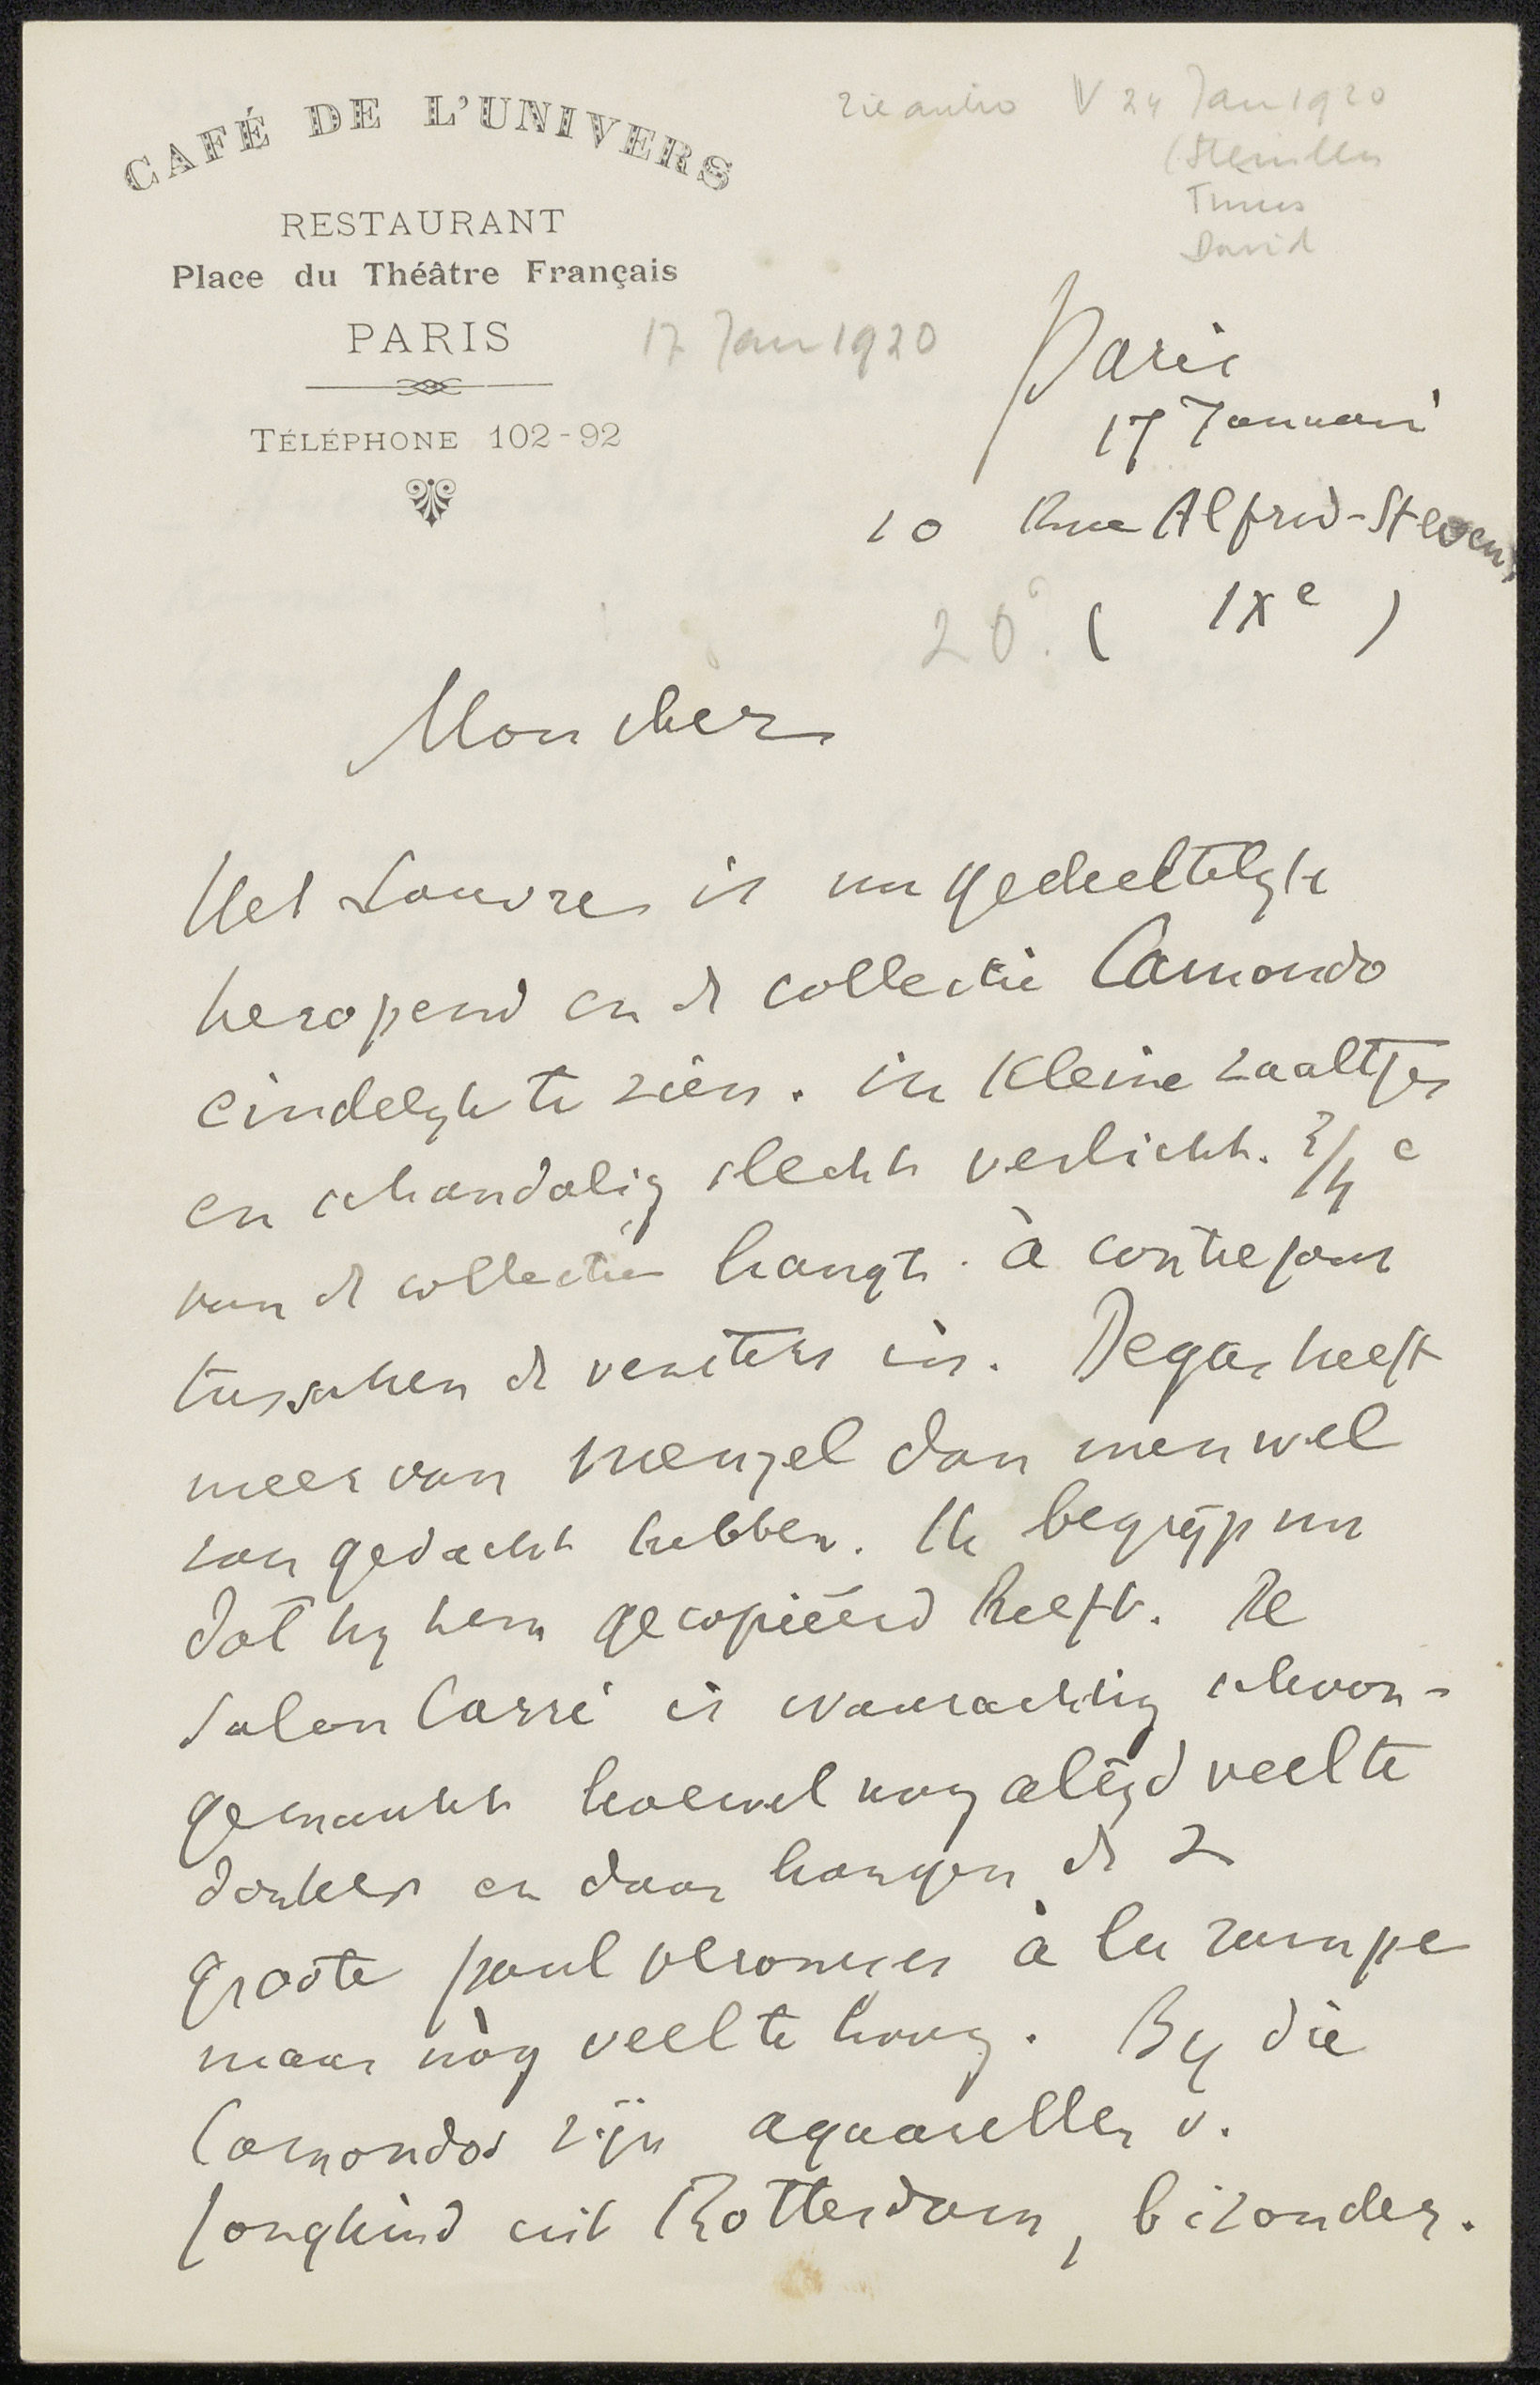 CAFÉ DE L'UNIVERS
RESTAURANT
Place du Théâtre Français
PARIS
TÉLÉPHONE 102-92
V 24 Jan 1920
David
17 Jan 1920
Paris
17 Januari
10 Rue Alfred-Stevens
20? ( IXe )
Mon cher
Het Louvre is nu gedeeltelyk
heropend en de collectie Camondo
eindelyk te zien. in kleine zaaltjes
en schandalig slecht verlicht. 3/4 e
van de collectie hangt à contrejour
tusschen de vensters in. Degas heeft
meer van Menzel dan men wel
zou gedacht hebben. Ik begrijp nu
dat hy hem gecopiëerd heeft. De
Salon Carré is waarachtig schoon-
gemaakt hoewel nog altijd veel te
donker en daar hangen de 2
groote paul veroneses à la rampe
maar nòg veel te hoog. By die
Camondos zijn aquarellen v.
Jongkind uit Rotterdam, bizonder.